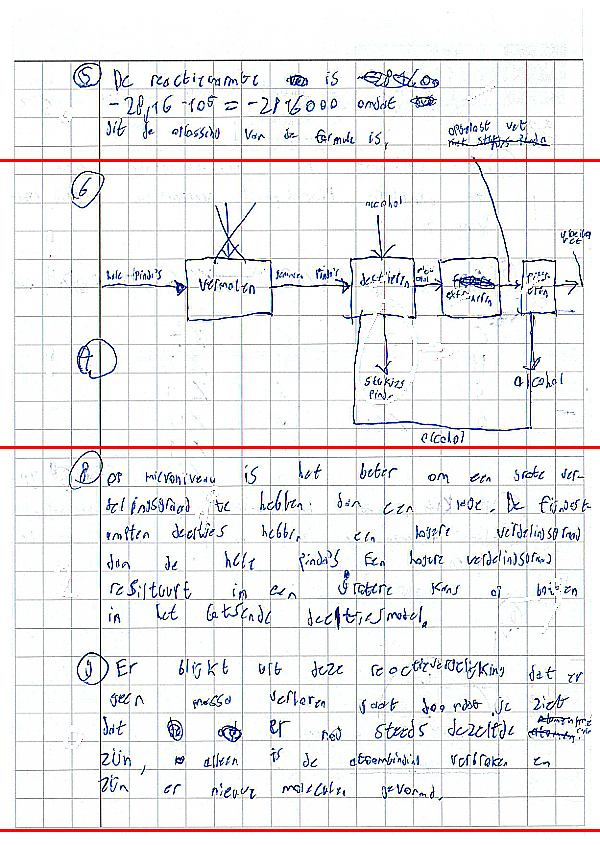 5 De reactiewarmte is
-28,16 · 10⁵ = -2816000 omdat
dit de oplossing van de formule is.
opgelost vet
6
alcohol
hele pinda's
vermalen
gemalen pinda's
alcohol
extraheren
vet
stukjes pinda
alcohol
alcohol
7
8 op microniveau is het beter om een grote ver-
delingsgraad te hebben dan een lage. De fijngest-
ampten deeltjes hebben een hogere verdelingsgraad
dan de hele pinda's Een hogere verdelingsgraad
resulteert in een grotere kans op botsen
in het botsende deeltjesmodel.
9 Er blijkt uit deze reactievergelijking dat er
geen massa verloren gaat doordat je ziet
dat er nog steeds dezelfde
zijn, alleen is de atoombinding verbroken en
zijn er nieuwe moleculen gevormd.